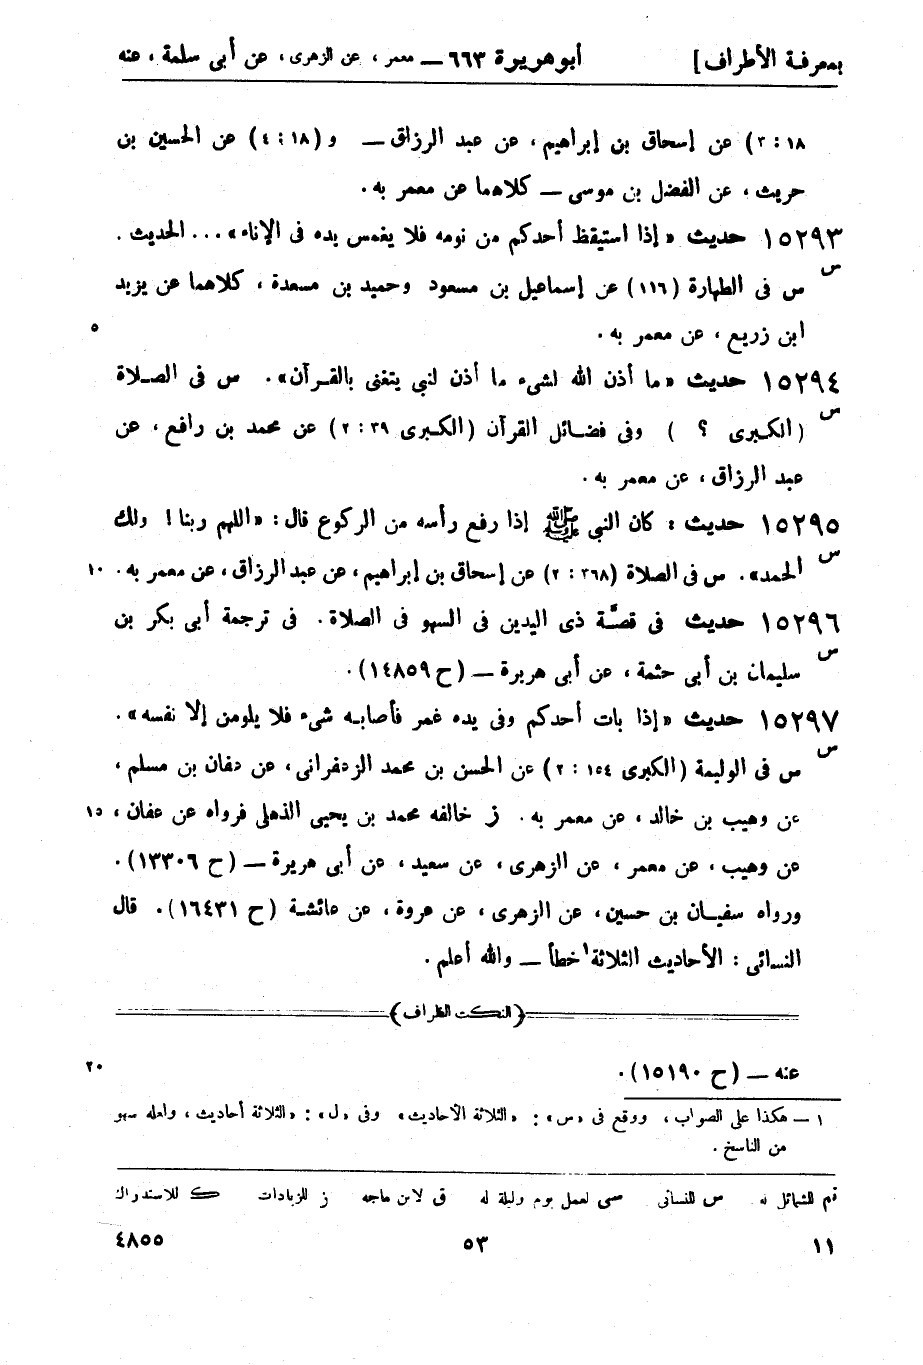 بمعرفة الأطراف] أبوهريرة ٦٦٣ — معمر، عن الزهرى، عن أبى سلمة، عنه
٣:١٨) عن إسحاق بن إبراهيم، عن عبد الرزاق — و (٤:١٨) عن الحسين بن
حريث، عن الفضل بن موسى — كلاهما عن معمر به.
١٥٢٩٣ حديث «إذا استيقظ أحدكم من نومه فلا يغمس يده فى الإناء»... الحديث.
س
س فى الطهارة (١١٦) عن إسماعيل بن مسعود وحميد بن مسعدة، كلاهما عن يزيد
ابن زريع، عن معمر به. ٥
١٥٢٩٤ حديث «ما أذن الله لشىء ما أذن لنبى يتغنى بالقرآن». س فى الصلاة
س
(الكبرى ؟ ) وفى فضائل القرآن (الكبرى ٣٩ : ٢) عن محمد بن رافع، عن
عبد الرزاق، عن معمر به.
١٥٢٩٥ حديث: كان النبى ﷺ إذا رفع رأسه من الركوع قال: «اللهم ربنا! ولك
س
الحمد». س فى الصلاة (٣٦٨ : ٢) عن إسحاق بن إبراهيم، عن عبد الرزاق، عن معمر به. ١٠
١٥٢٩٦ حديث فى قصّة ذى اليدين فى السهو فى الصلاة. فى ترجمة أبى بكر بن
س
سليمان بن أبى حثمة، عن أبى هريرة — (ح ١٤٨٥٩).
١٥٢٩٧ حديث «إذا بات أحدكم وفى يده غمر فأصابه شىء فلا يلومن إلا نفسه».
س
س فى الوليمة (الكبرى ١٥٤ : ٢) عن الحسن بن محمد الزعفرانى، عن عفان بن مسلم،
عن وهيب بن خالد، عن معمر به. ز خالفه محمد بن يحيى الذهلى فرواه عن عفان، ١٥
عن وهيب، عن معمر، عن الزهرى، عن سعيد، عن أبى هريرة — (ح ١٣٣٠٦).
ورواه سفيان بن حسين، عن الزهرى، عن عروة، عن عائشة (ح ١٦٤٣١). قال
النسائى: الأحاديث الثلاثة١ خطأ — والله أعلم.
(النكت الظراف)
عنه — (ح ١٥١٩٠). ٢٠
١ — هكذا على الصواب، ووقع فى «س»: «الثلاثة الأحاديث» وفى «ل»: «الثلاثة أحاديث، ولعله سهو
من الناسخ.
تم للشمائل له س للنسائى سى لعمل يوم وليلة له ق لابن ماجه ز للزيادات ك للاستدراك
١١ ٥٣ ٤٨٥٥